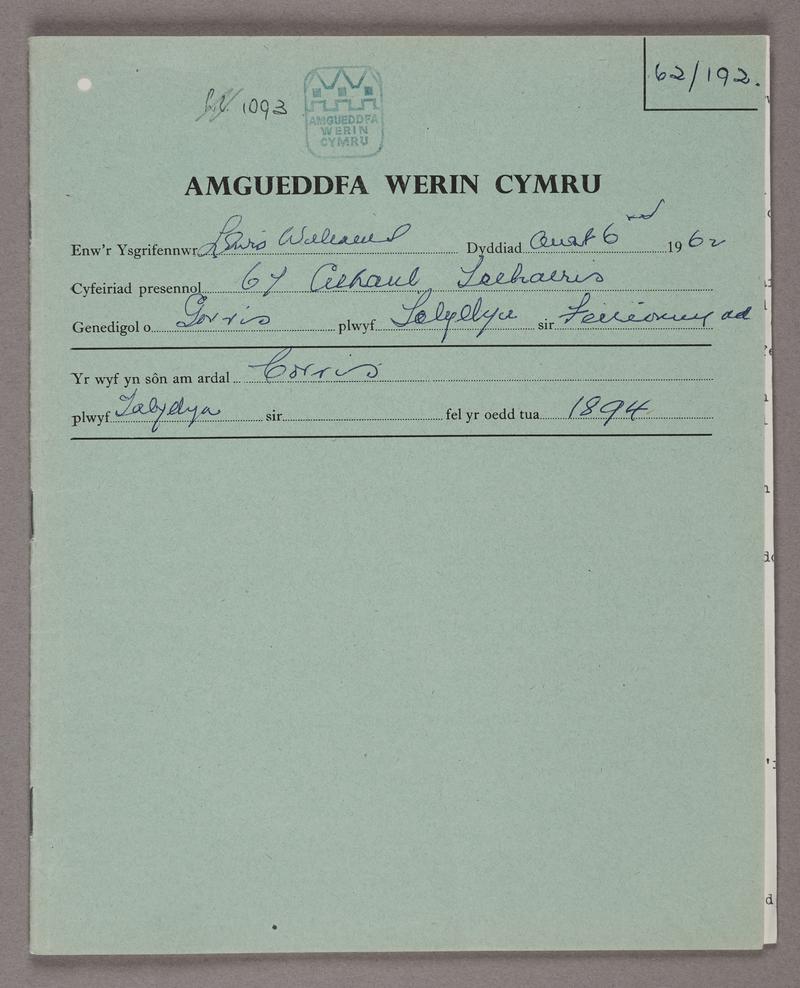 62/192.
1093
AMGUEDDFA
WERIN
CYMRU
AMGUEDDFA WERIN CYMRU
Enw'r Ysgrifennwr Lewis Williams Dyddiad 6 1962
Cyfeiriad presennol 67
Genedigol o Corris plwyf Talyllyn sir
Yr wyf yn sôn am ardal Corris
plwyf Talyllyn sir fel yr oedd tua 1894